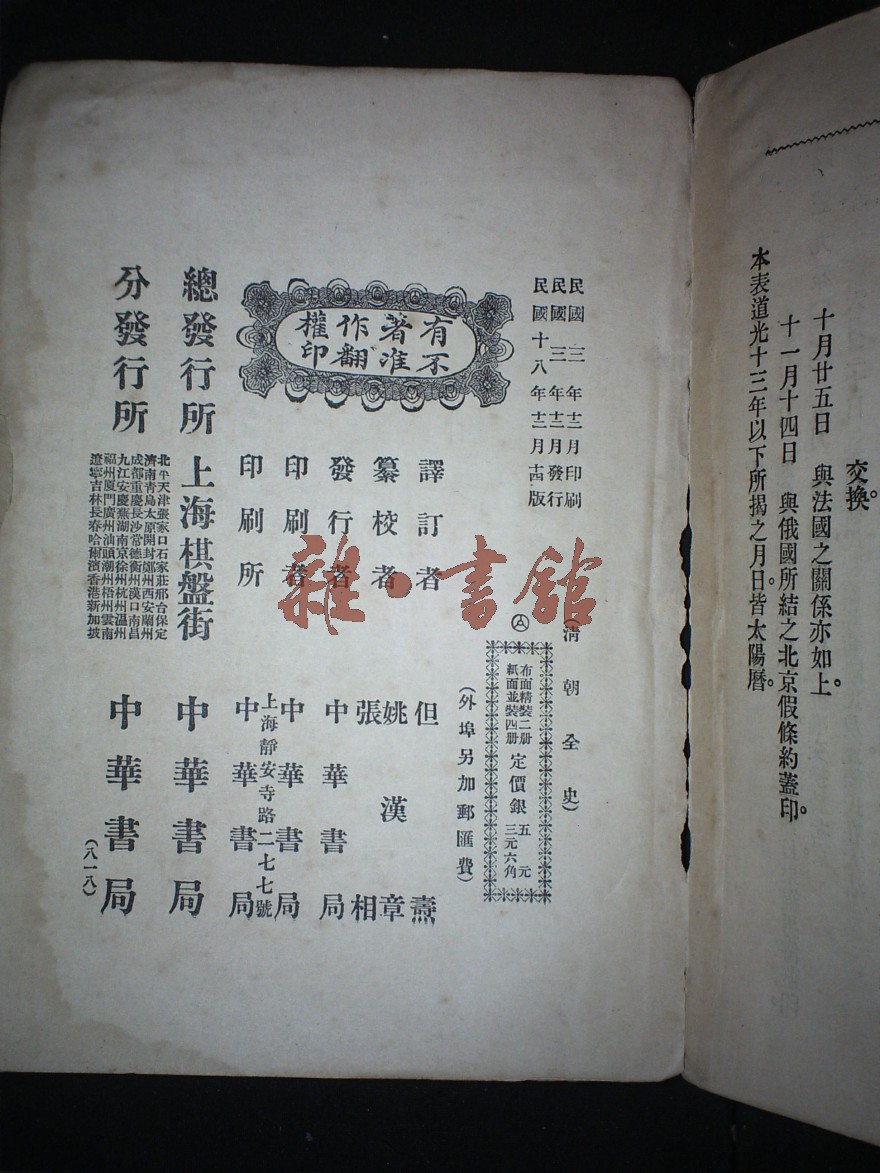 交換。
十月廿五日 與法國之關係亦如上。
十一月十四日 與俄國所結之北京假條約蓋印。
本表道光十三年以下所揭之月日。皆太陽曆。
民國三年十二月印刷
民國三年十二月發行
民國十八年十二月十四版
(清朝全史)
布面精裝二册 定價銀 五元
紙面並裝四册 定價銀 三元六角
(外埠另加郵匯費)
有著作權
不准翻印
譯訂者 但燾
纂校者 姚漢章
張相
發行者 中華書局
印刷者 中華書局
印刷所 上海靜安寺路二七七號
中華書局
總發行所 上海棋盤街 中華書局
分發行所
北平天津張家口石家莊邢台保定
濟南青島太原開封鄭州西安蘭州
成都重慶長沙常德衡州漢口南昌
九江安慶蕪湖南京徐州杭州溫州
福州厦門廣州汕頭潮州梧州雲南
遼寧吉林長春哈爾濱香港新加坡
中華書局
(八一八)
雜·書館